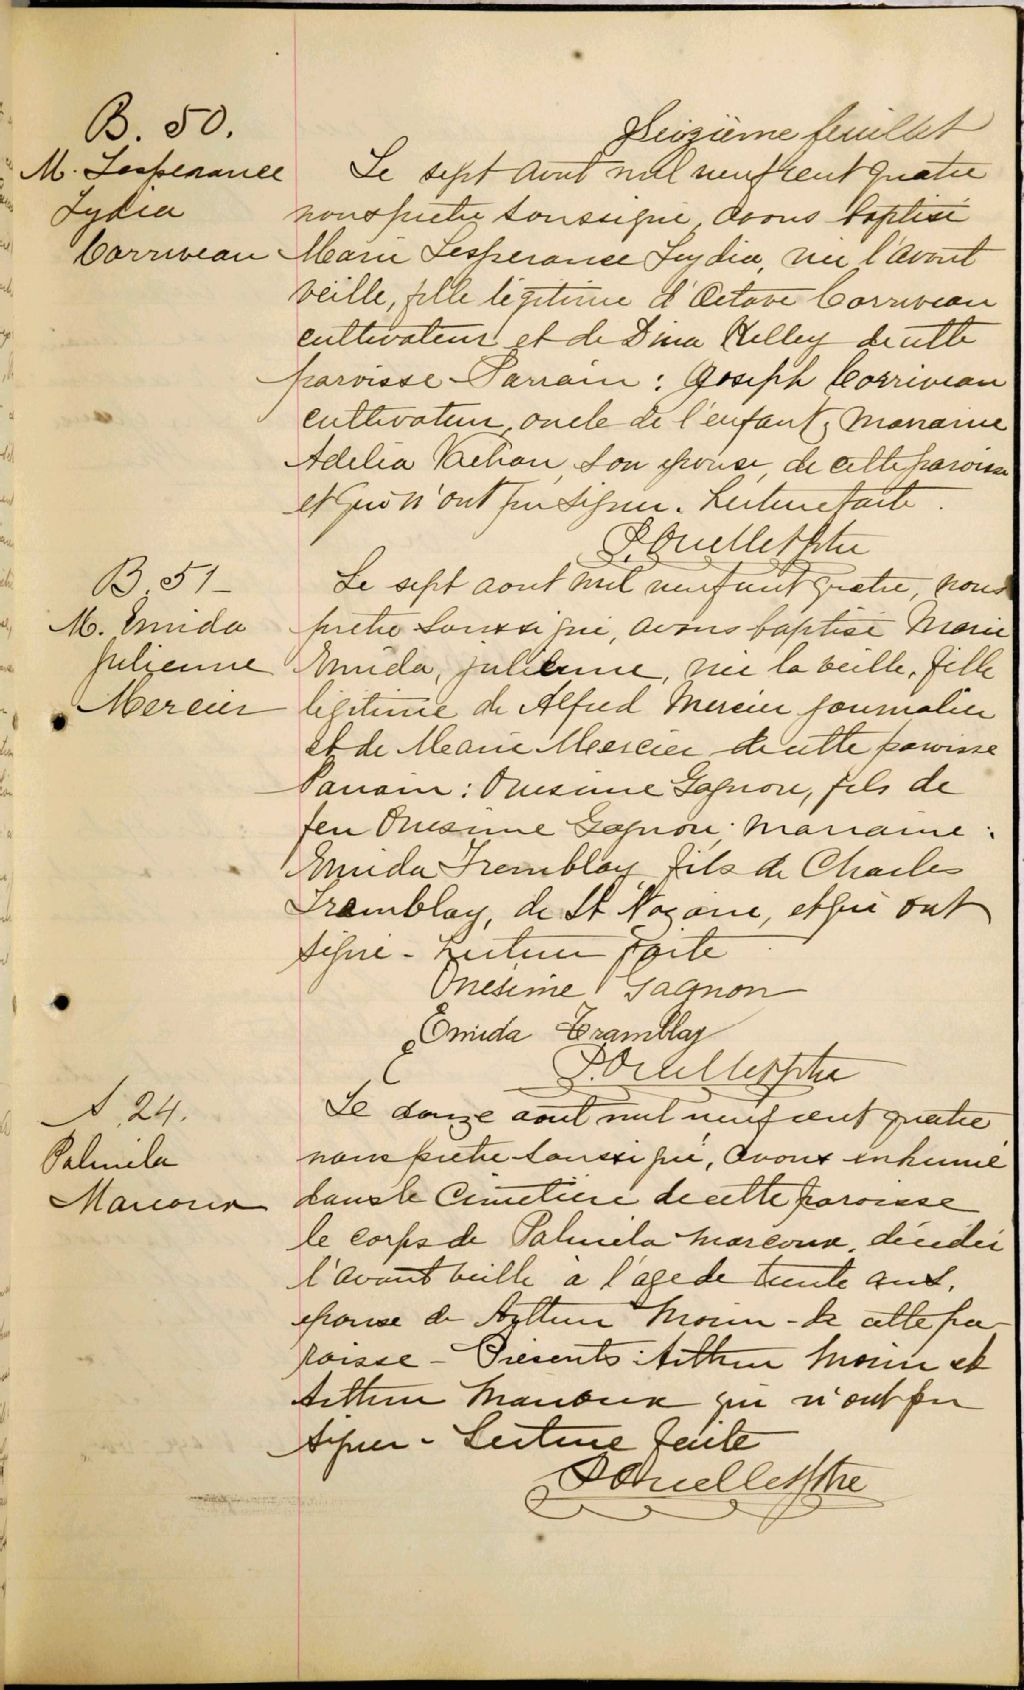 Seizième feuillet
B. 50.
M. Lesperance
Lydia
Corriveau
Le sept aout mil neuf cent quatre
nous pretre soussigné, avons baptisé
Marie Lesperance Lydia, née l'avant
veille, fille légitime d'Octave Corriveau
cultivateur et de Dina Kelley de cette
paroisse - Parrain : Joseph Corriveau
cultivateur, oncle de l'enfant; marraine
Adélia Vachon, son epouse, de cette paroisse
et qui n'ont pu signer. Lecture faite.
P. Ouellet Ptre
B. 51 -
M. Emida
Julienne
Mercier
Le sept aout mil neuf cent quatre, nous
pretre soussigné, avons baptisé Marie
Emida, julienne, née la veille, fille
légitime de Alfred Mercier journalier
et de Marie Mercier de cette paroisse
Parrain : Onesime Gagnon, fils de
feu Onesime Gagnon; marraine :
Emida Tremblay fils de Charles
Tramblay, de St Nazaire, et qui ont
signé - Lecture faite
Onésime Gagnon
Emida Tramblay
P. Ouellet Ptre
S. 24.
Palmila
Marcoux
Le douze aout mil neuf cent quatre
nous pretre soussigné, avons inhumé
dans le Cimetière de cette paroisse
le corps de Palmila Marcoux, décédée
l'avant veille à l'age de trente ans,
epouse de Arthur Morin - de cette pa-
roisse - Présents : Arthur Morin et
Arthur Marcoux qui n'ont pu
signer - Lecture faite
P. Ouellet Ptre